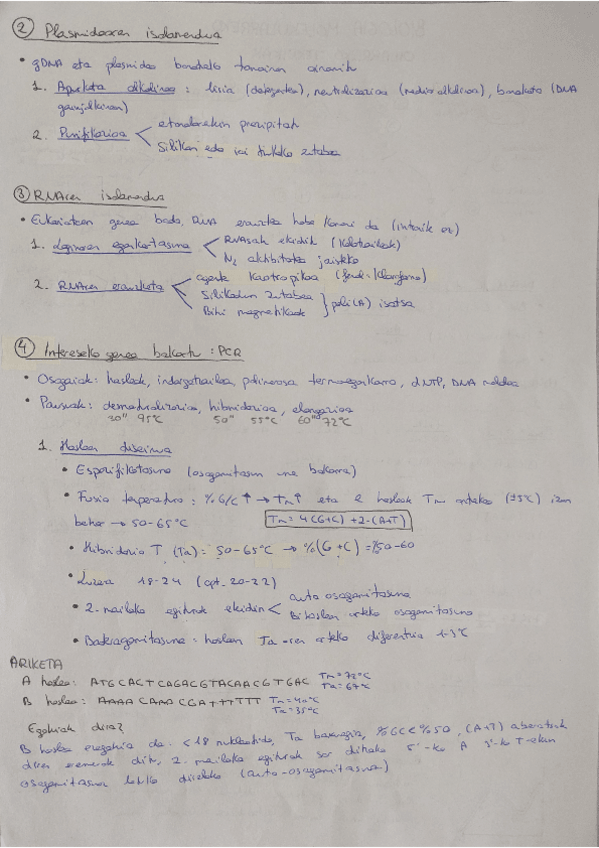 ② Plasmidoaren isolamendua
• gDNA eta plasmidoa banatzeko tamainan oinarrituz
1. Aparteko alkalinoa : lisia (detergentea), neutralizazioa (medio alkalinoa), banaketa (DNA
gainjalkinan)
2. Purifikazioa < etanolarekin prezipitatu
Silikazko edo ioi trukeko zutabea
③ RNAren isolamendua
• Eukariotoen genea bada, RNA erauztea hobe komeni da (intronik ez)
1. Laginaren egonkortasuna < RNAsak ekidin (kalotraileak)
N₂ likidotako jaisteko
2. RNAren erauzketa < agente kaotropikoa (fenol-kloroformo)
Silikadun zutabea
Bihi magnetikoak } poli(A) isatsa
④ Intereseko genea bakartu : PCR
• Osagaiak: hasleak, indargetzailea, polimerasa termoegonkorra, dNTP, DNA moldea
• Pausuak: desnaturalizazioa, hibridazioa, elongazioa
30'' 95°C 50'' 55°C 60'' 72°C
1. Hasleen diseinua
• Espezifikotasuna (osagarritasun une bakarra)
• Fusio tenperatura : % G/C ↑ → Tm ↑ eta 2 hasleak Tm antzeko (±5°C) izan
behar → 50-65°C Tm = 4(G+C) + 2·(A+T)
• Hibridazio T (Ta) : 50-65°C → %(G+C) = %50-60
• Luzera 18-24 (opt. 20-22)
• 2. mailako egiturak ekidin < auto osagarritasuna
Bi hasleen arteko osagarritasuna
• Bateragarritasuna : hasleen Ta-ren arteko diferentzia 1-3°C
ARIKETA
A haslea : ATGCACTCAGACGTACAACGTGAC Tm = 72°C
Ta = 67°C
B haslea : AAAA CAAA CGATTTTTT Tm = 40°C
Ta = 35°C
Egokiak dira?
B haslea ezegokia da. < 18 nukleotido, Ta baxuegia, %GC < %50, (A+T) aberatsak
diren eremuak ditu, 2. mailako egiturak sor ditzake 5'-ko A 3'-ko T-ekin
osagarritasuna izateko direlako (auto-osagarritasuna)